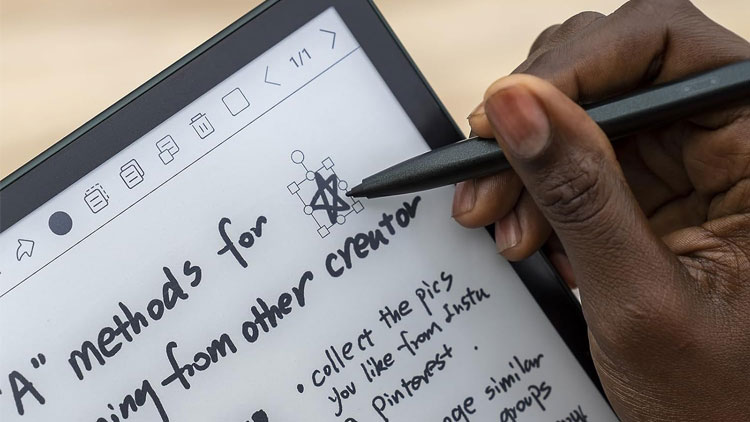 1/1
"A" methods for
from other creator
• collect the pics
you like from Insta
pinterest.
similar
groups